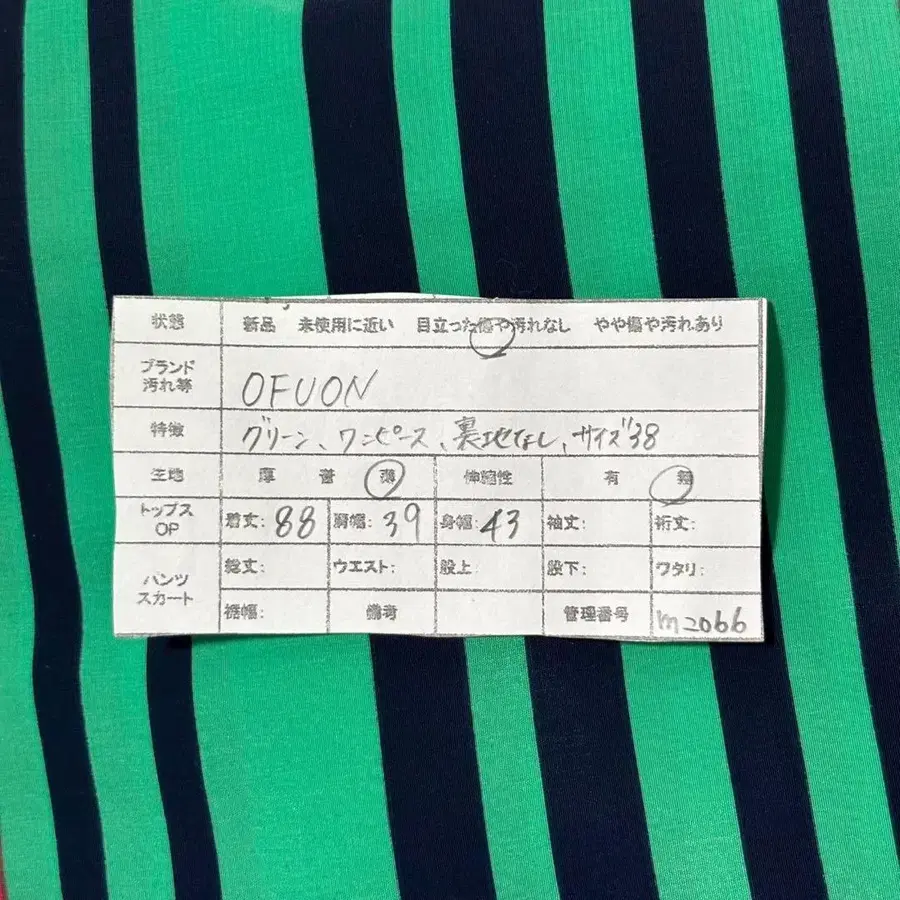 状態 新品 未使用に近い 目立った傷や汚れなし やや傷や汚れあり
ブランド
汚れ等 OFUON
特徴 グリーン、ワンピース、裏地なし、サイズ38
生地 厚 普 薄 伸縮性 有 無
トップス
OP 着丈: 88 肩幅: 39 身幅: 43 袖丈: 裄丈:
パンツ
スカート 総丈: ウエスト: 股上: 股下: ワタリ:
裾幅: 備考 管理番号 m2066